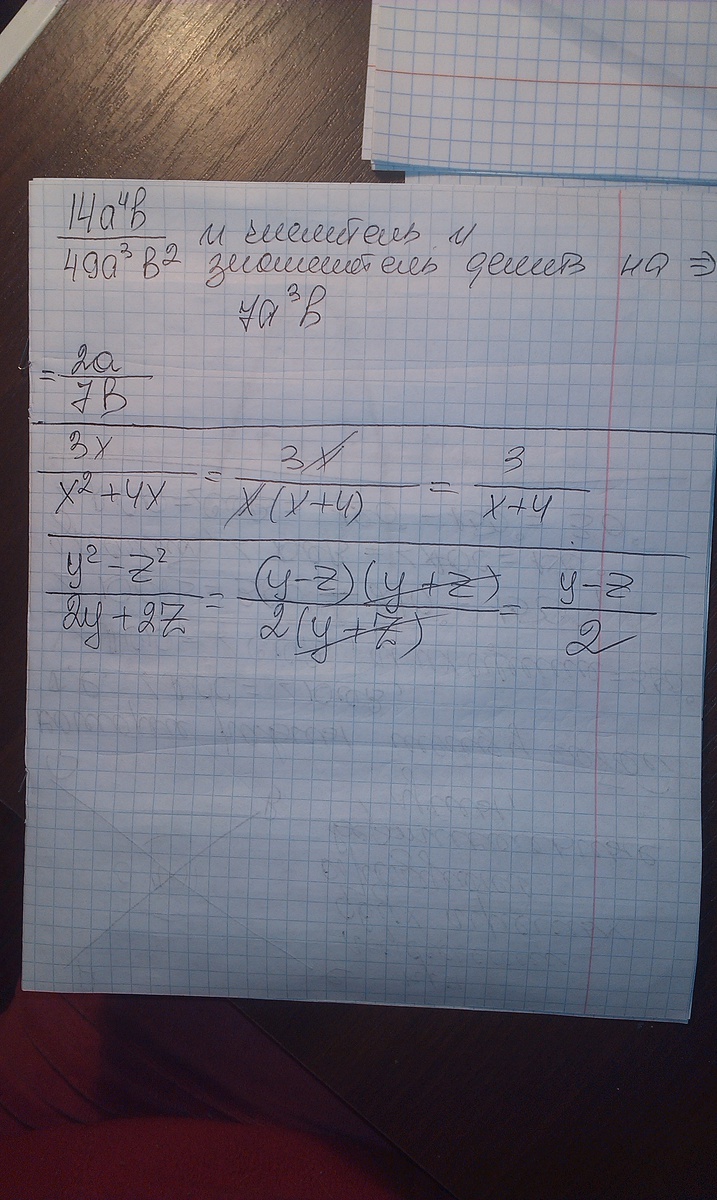 14a⁴b / 49a³b² и числитель и
знаменатель делить на ⇒
7a³b
= 2a / 7b
3x / x² + 4x = 3x / x(x+4) = 3 / x+4
y² − z² / 2y + 2z = (y−z)(y+z) / 2(y+z) = y−z / 2